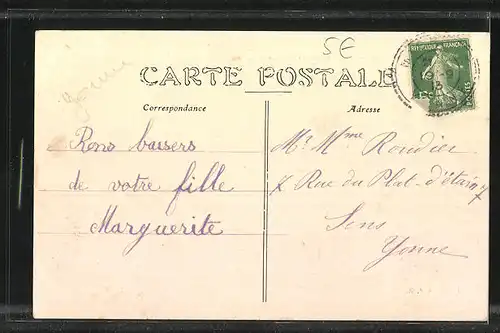 5E
Yonne
CARTE POSTALE
REPUBLIQUE FRANÇAISE
POSTES
Correspondance
Adresse
Bons baisers
de votre fille
Marguerite
Mr Mme Rondier
7 Rue du Plat-d'étain 7
Sens
Yonne